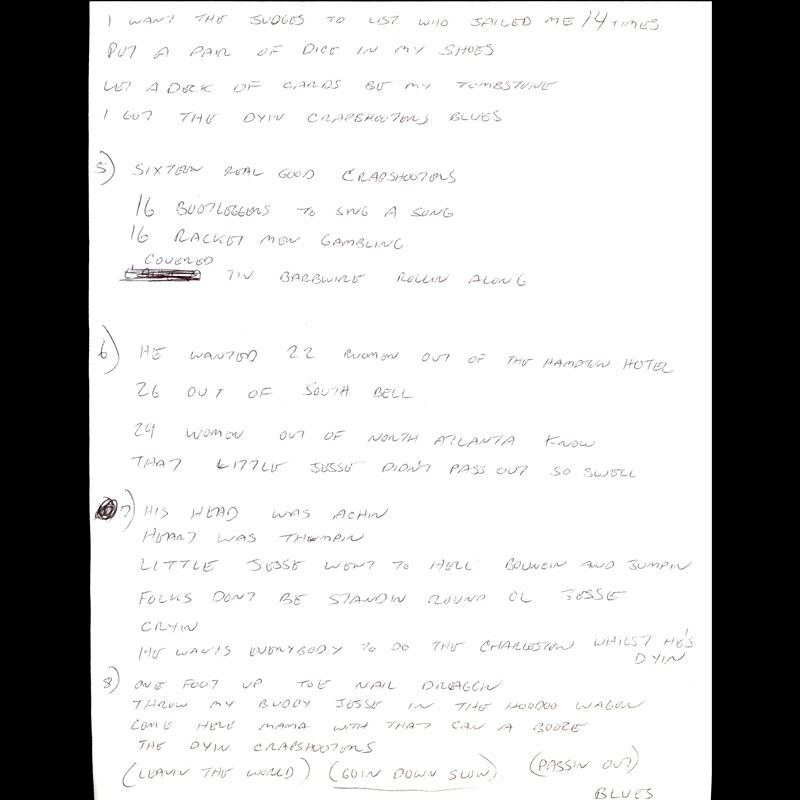 I WANT THE JUDGES TO LIST WHO JAILED ME 14 TIMES
PUT A PAIR OF DICE IN MY SHOES
LET A DECK OF CARDS BE MY TOMBSTONE
I GOT THE DYIN CRAPSHOOTERS BLUES
5) SIXTEEN REAL GOOD CRAPSHOOTERS
16 BOOTLEGGERS TO SING A SONG
16 RACKET MEN GAMBLING
COVERED
TIN BARBWIRE ROLLIN ALONG
6) HE WANTED 22 WOMEN OUT OF THE HAMPTON HOTEL
26 OUT OF SOUTH BELL
29 WOMEN OUT OF NORTH ATLANTA KNOW
THAT LITTLE JESSE DIDN'T PASS OUT SO SWELL
7) HIS HEAD WAS ACHIN
HEART WAS THUMPIN
LITTLE JESSE WENT TO HELL BOUNCIN AND JUMPIN
FOLKS DON'T BE STANDIN ROUND OL JESSE
CRYIN
HE WANTS EVERYBODY TO DO THE CHARLESTON WHILST HE'S
DYIN
8) ONE FOOT UP TOE NAIL DRAGGIN
THROW MY BUDDY JESSE IN THE HOODOO WAGON
COME HERE MAMA WITH THAT CAN A BOOZE
THE DYIN CRAPSHOOTERS
(LEAVIN THE WORLD) (GOIN DOWN SLOW) (PASSIN OUT)
BLUES